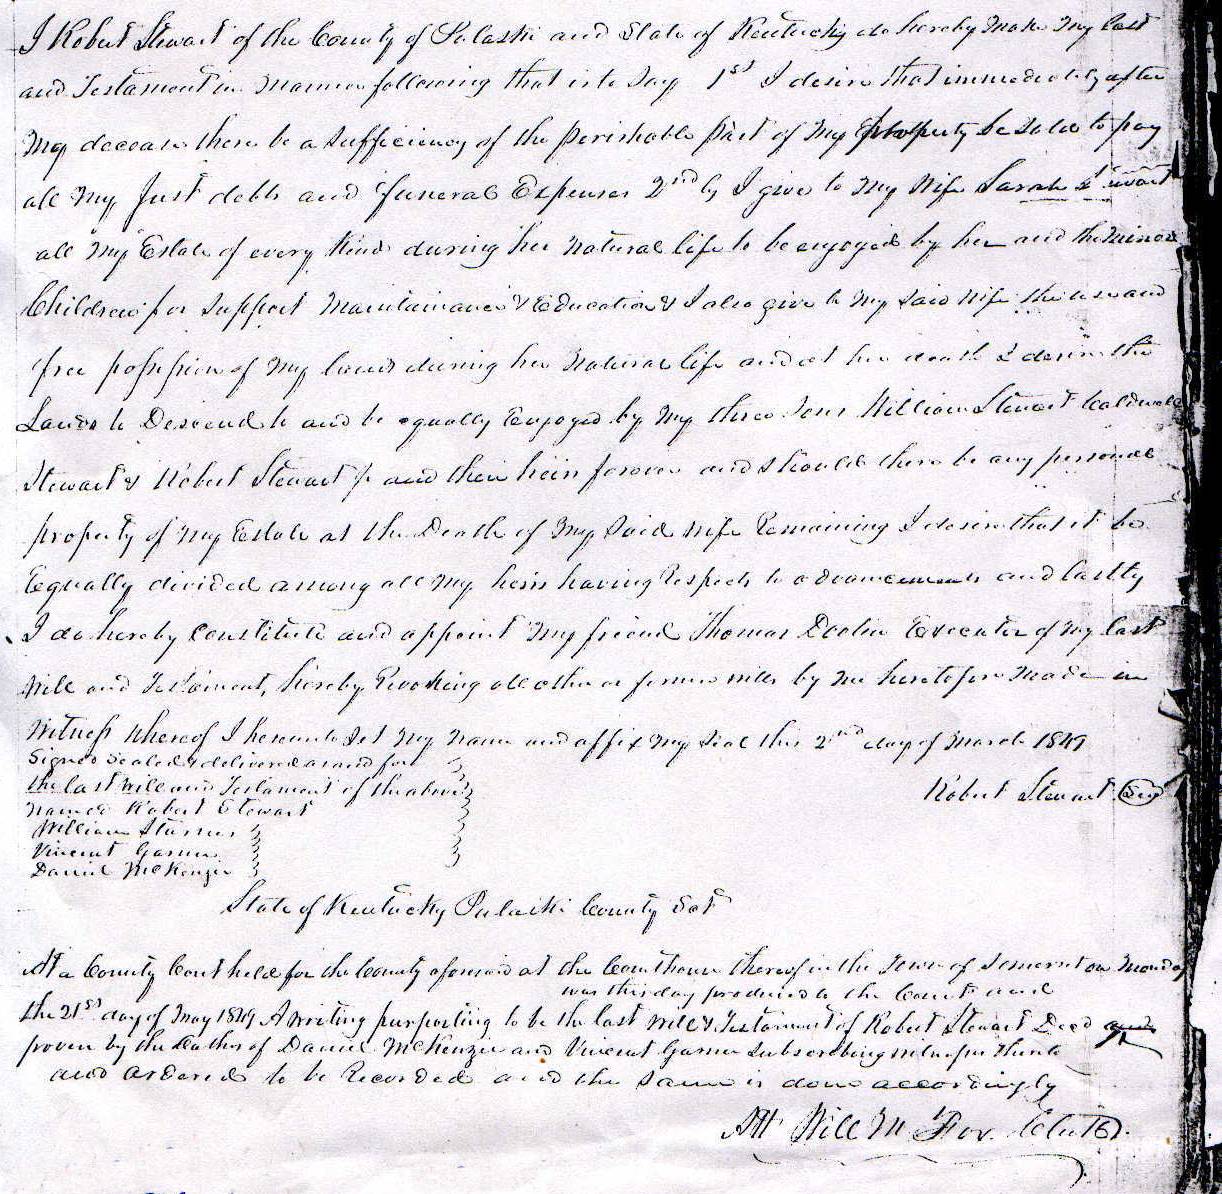 I Robert Stewart of the County of Pulaski and State of Kentucky do hereby make my last
and Testament in manner following that is to say 1st I desire that immediately after
my decease there be a sufficiency of the perishable part of my property be sold to pay
all my Just debts and funeral Expenses 2ndly I give to my wife Sarah Stewart
all my Estate of every kind during her natural life to be enjoyed by her and the minor
Children for support maintainance & Education & I also give to my said wife the use and
free possession of my lands during her natural life and at her death I desire the
Lands to Descend to and be equally Enjoyed by my three sons William Stewart Caldwell
Stewart & Robert Stewart Jr and their heirs forever and should there be any personal
property of my Estate at the Death of my said wife Remaining I desire that it be
Equally divided among all my heirs having Respects to advancements and lastly
I do hereby constitute and appoint my friend Thomas Executer of my last
Will and Testament, hereby Revoking all other or former wills by me heretofore made in
Witness whereof I hereunto set my name and affix my seal this 2nd day of March 1849
Signed Sealed & delivered as and for
the last Will and Testament of the above
named Robert Stewart
Robert Stewart
William
Vincent Garner
Daniel McKenzie
State of Kentucky Pulaski County Sct
At a County Court held for the County aforesaid at the Courthouse thereof in the Town of Somerset on Monday
was this day produced to the Court and
the 21st day of May 1849 A writing purporting to be the last Will & Testament of Robert Stewart Decd
proven by the Oaths of Daniel McKenzie and Vincent Garner subscribing witnesses thereto
and ordered to be Recorded and the same is done accordingly
Att Will M Fox